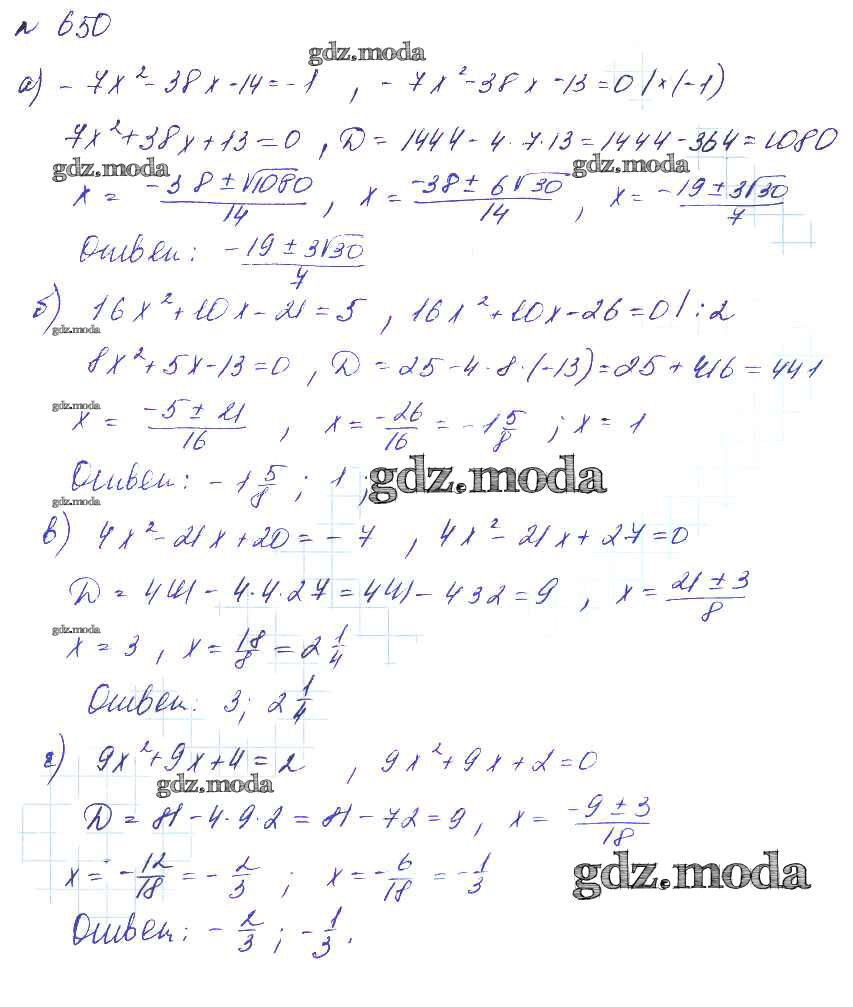 № 650
gdz.moda
а) -7x² - 38x - 14 = -1 , -7x² - 38x - 13 = 0 | × (-1)
7x² + 38x + 13 = 0 , D = 1444 - 4 · 7 · 13 = 1444 - 364 = 1080
gdz.moda gdz.moda
x = (-38 ± √1080)/14 , x = (-38 ± 6√30)/14 , x = (-19 ± 3√30)/7
Ответ: (-19 ± 3√30)/7
б) 16x² + 10x - 21 = 5 , 16x² + 10x - 26 = 0 | : 2
gdz.moda
8x² + 5x - 13 = 0 , D = 25 - 4 · 8 · (-13) = 25 + 416 = 441
gdz.moda
x = (-5 ± 21)/16 , x = -26/16 = -1 5/8 ; x = 1
Ответ: -1 5/8 ; 1 ; gdz.moda
gdz.moda
в) 4x² - 21x + 20 = -7 , 4x² - 21x + 27 = 0
D = 441 - 4 · 4 · 27 = 441 - 432 = 9 , x = (21 ± 3)/8
gdz.moda
x = 3 , x = 18/8 = 2 1/4
Ответ: 3; 2 1/4
г) 9x² + 9x + 4 = 2 , 9x² + 9x + 2 = 0
gdz.moda
D = 81 - 4 · 9 · 2 = 81 - 72 = 9 , x = (-9 ± 3)/18
x = -12/18 = -2/3 ; x = -6/18 = -1/3
gdz.moda
Ответ: -2/3 ; -1/3 .